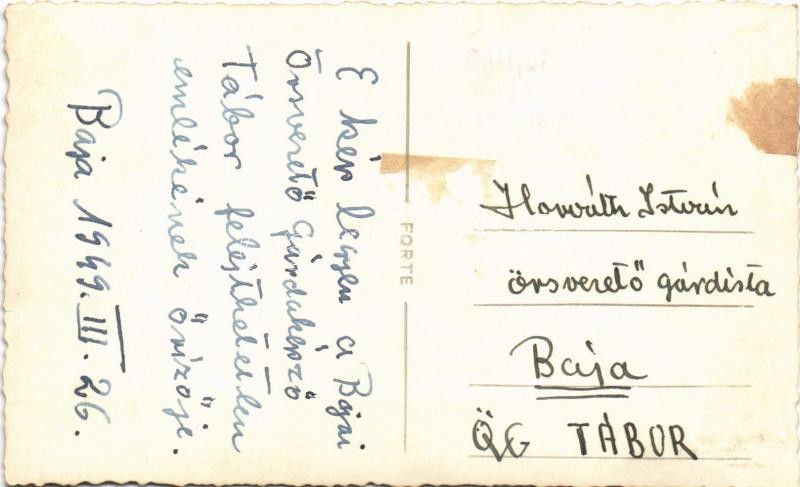 E kép legyen a Bajai
Örsvezető Gárdaképző
Tábor felejthetetlen
emlékének őrizője.
Baja 1949. III. 26.
FORTE
Horváth István
örsvezető gárdista
Baja
ÖG TÁBOR